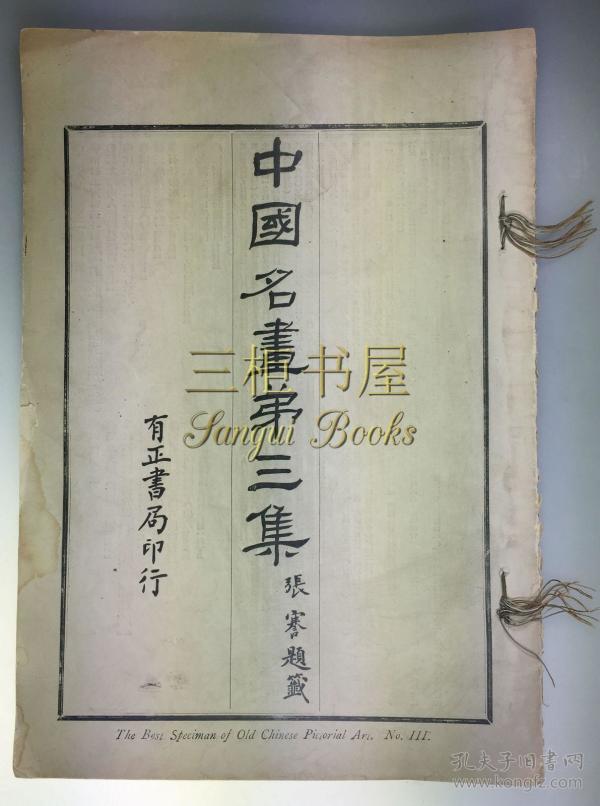 中國名畫弟三集
張謇題籤
有正書局印行
The Best Speciman of Old Chinese Pictorial Art. No. III.
三柜书屋
Sangui Books
孔夫子旧书网
www.kongfz.com